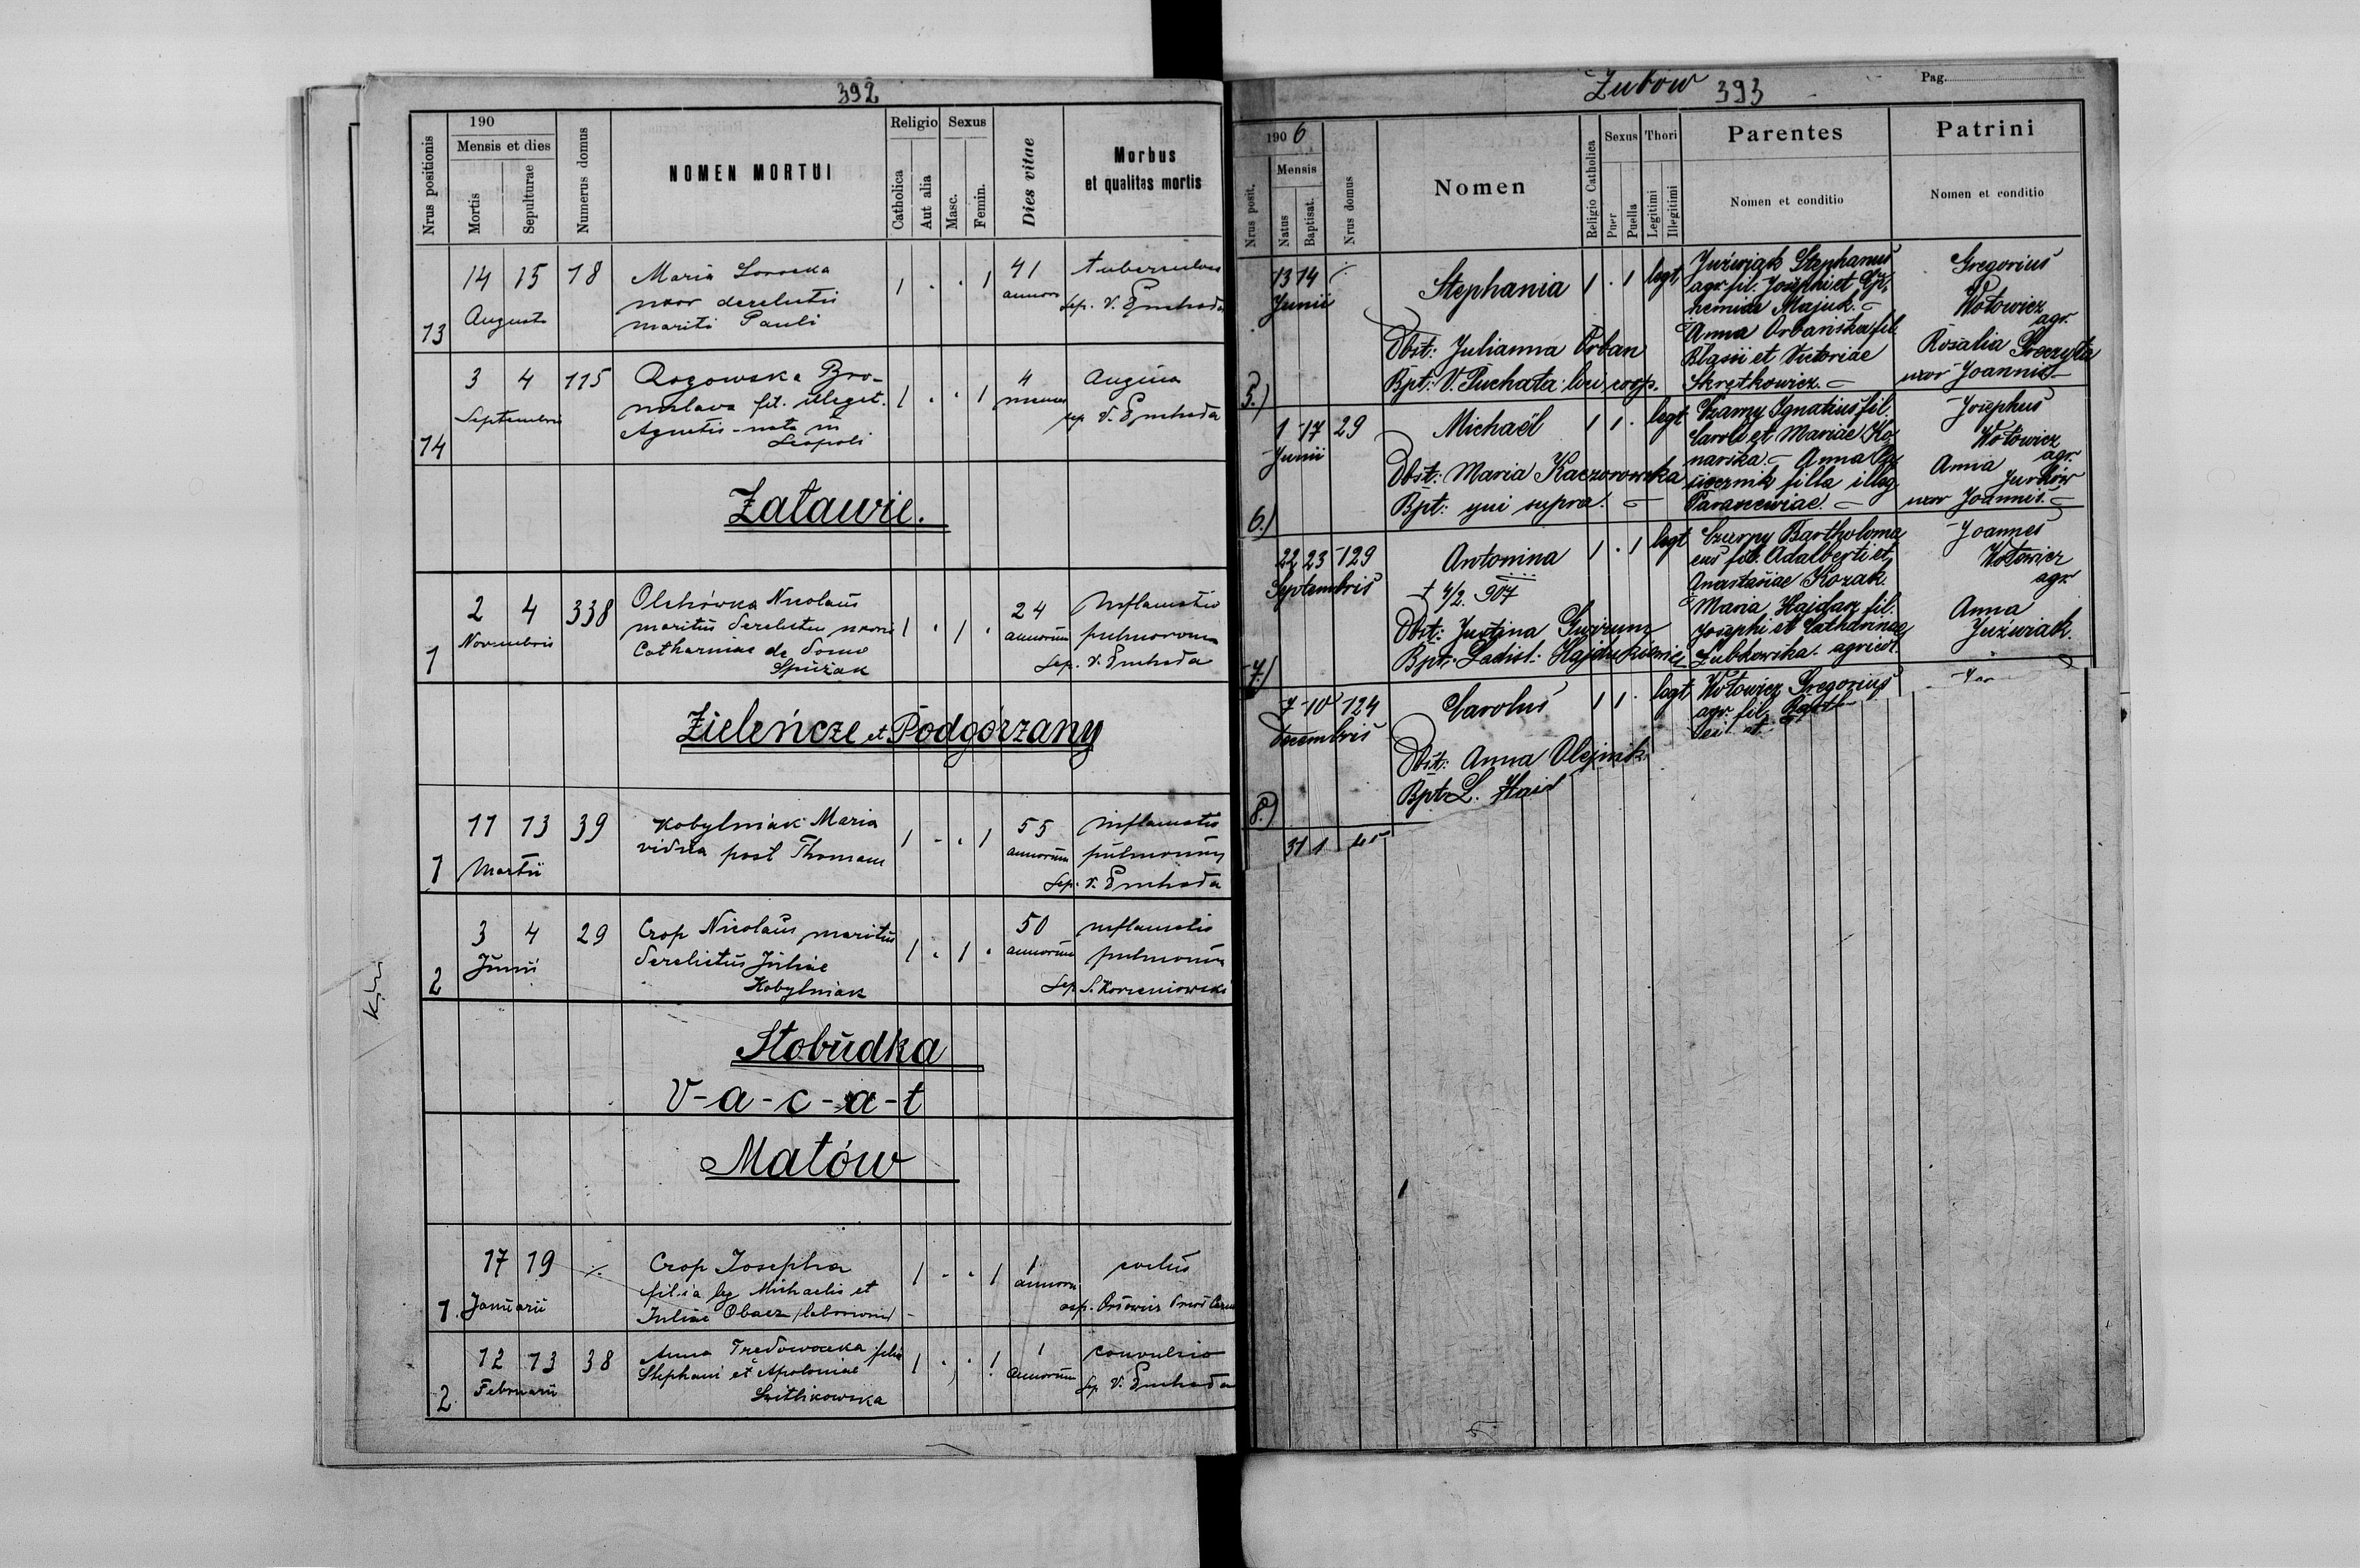 392
190
Nrus positionis
Mensis et dies
Mortis
Sepulturae
Numerus domus
NOMEN MORTUI
Religio
Catholica
Aut alia
Sexus
Masc.
Femin.
Dies vitae
Morbus
et qualitas mortis
14 15 18 Maria
uxor derelicti
mariti Pauli
1 . . 1
41
annor
Augusti
13
3 4 115 Rogowska Bro-
nislava fil. illegit.
Agnetis - nata in
Leopoli
1 . . 1
4
menses
Angina
Septembris
14
Załawie.
2 4 338 Olchówka Nicolaus
maritus derelictus uxoris
Catharinae de domo
Spiżak
1 . 1 .
24
annorum
Inflamatio
pulmonum
Novembris
1
Zieleńcze et Podgórzany
11 13 39 Kobylniak Maria
vidua post Thomam
1 - . 1
55
annorum
Inflamatio
pulmonum
Martii
1
3 4 29 Crop Nicolaus maritus
derelictus Juliae
Kobylniak
1 . 1 .
50
annorum
inflamatio
pulmonum
Sep. S. Korzeniowski
Junii
2
Słobudka
V-a-c-a-t
Małów
17 19 ⁒ Crop Josepha
filia leg Michaelis et
Juliae
1 - . 1
1
annorum
Januarii
1.
12 13 38 Anna filia
Stephani et Apoloniae
1 . . 1
1
annorum
convulsio
Februarii
2.
Zubow 393
Pag.
1906
Nrus posit.
Mensis
Natus
Baptisat.
Nrus domus
Nomen
Religio Catholica
Sexus
Puer
Puella
Thori
Legitimi
Illegitimi
Parentes
Nomen et conditio
Patrini
Nomen et conditio
13 14 ⁒
Junii
Stephania
1 . 1 legt.
Juźwiak Stephanus
agr. fil. Josephi et Eph
hemiae Majuk.
Anna Orbańska fil.
Blasii et Victoriae
Skrętkowicz.
Gregorius
Wołowicz
agr.
Rosalia Greczyła
uxor Joannis
Obst: Julianna Orban
Bpt: V. Puchata loci coop.
5.)
1 17 29
Junii
Michaël
1 1 . legt
Czarny Ignatius fil.
Caroli et Mariae Ko
narska. Anna
filia illeg.
Parascewiae.
Josephus
Wołowicz
agr.
Anna Jurków
uxor Joannis.
Obst: Maria Kaczorowska
Bpt: qui supra.
6.)
22 23 129
Septembris
Antonina
† 4/2. 907
1 . 1 legt
Czarny Bartholoma
eus fil. Adalberti et
Anastasiae Kozak.
Maria Hajdar fil.
Josephi et Catharinae
Zubkowska. agricol.
Joannes
Wołowicz
agr
Anna
Juźwiak.
Obst: Justina
Bpt: Ladisl: Hajdukiewicz
7.)
7 10 124
Decembris
Carolus
1 1 . legt
Wołowicz Gregorius
agr. fil.
Obst: Anna Olejnik.
Bpt: L. Haid
8.)
31 1